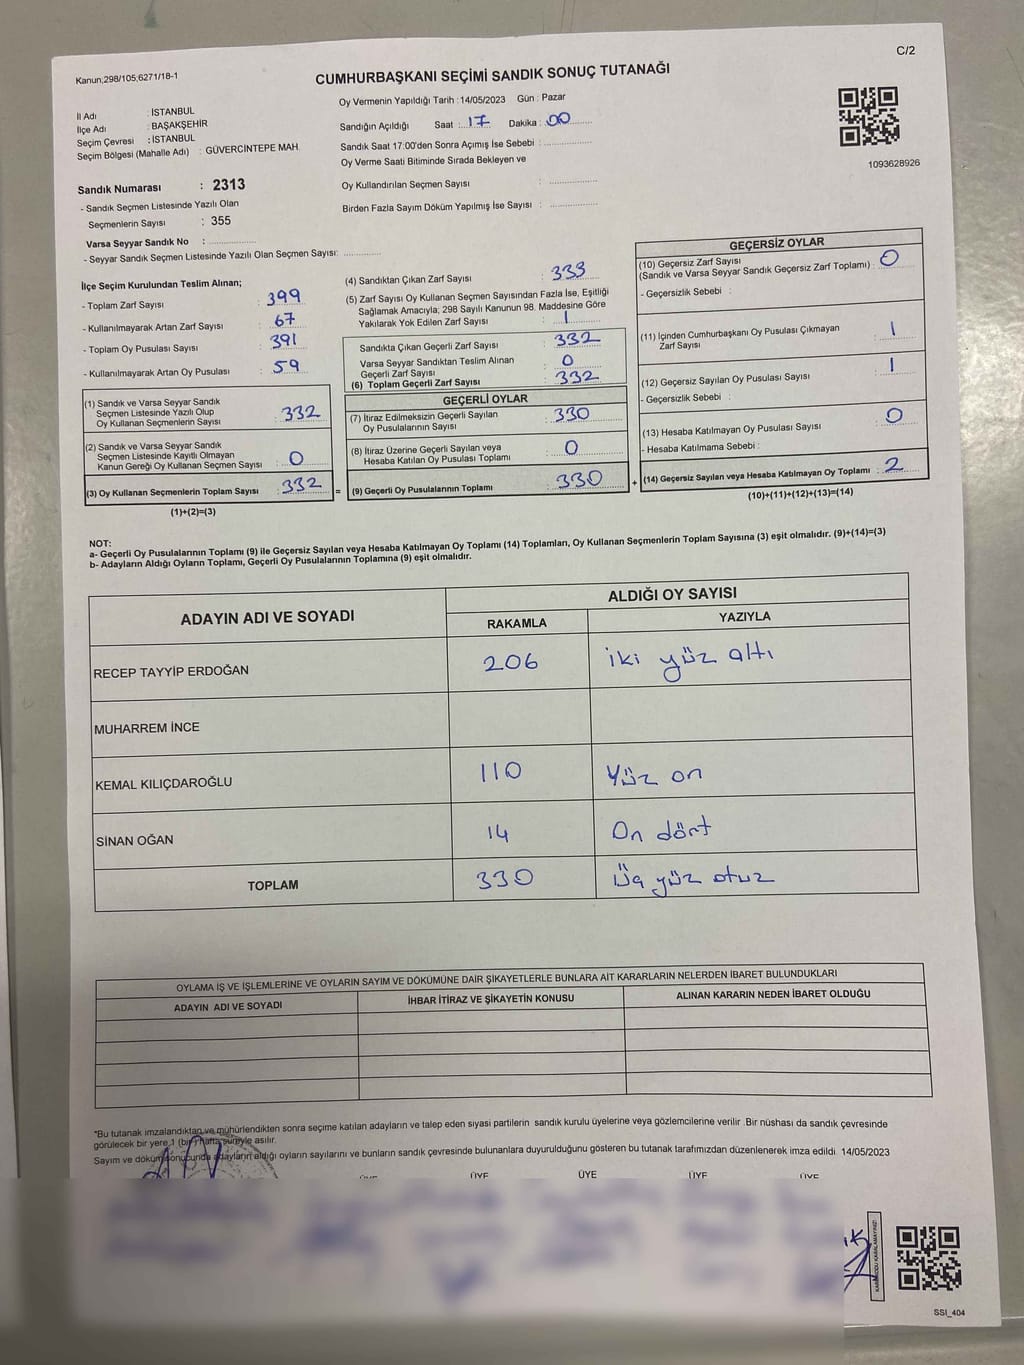 C/2
Kanun;298/105;6271/18-1
CUMHURBAŞKANI SEÇİMİ SANDIK SONUÇ TUTANAĞI
İl Adı : İSTANBUL
İlçe Adı : BAŞAKŞEHİR
Seçim Çevresi : İSTANBUL
Seçim Bölgesi (Mahalle Adı) : GÜVERCİNTEPE MAH.
Oy Vermenin Yapıldığı Tarih : 14/05/2023 Gün : Pazar
Sandığın Açıldığı Saat : 17 Dakika : 00
Sandık Saat 17:00'den Sonra Açımış İse Sebebi :
Oy Verme Saati Bitiminde Sırada Bekleyen ve
Oy Kullandırılan Seçmen Sayısı :
Birden Fazla Sayım Döküm Yapılmış İse Sayısı :
1093628926
Sandık Numarası : 2313
- Sandık Seçmen Listesinde Yazılı Olan
Seçmenlerin Sayısı : 355
Varsa Seyyar Sandık No :
- Seyyar Sandık Seçmen Listesinde Yazılı Olan Seçmen Sayısı:
İlçe Seçim Kurulundan Teslim Alınan;
- Toplam Zarf Sayısı : 399
- Kullanılmayarak Artan Zarf Sayısı : 67
- Toplam Oy Pusulası Sayısı : 391
- Kullanılmayarak Artan Oy Pusulası : 59
(1) Sandık ve Varsa Seyyar Sandık
Seçmen Listesinde Yazılı Olup
Oy Kullanan Seçmenlerin Sayısı : 332
(2) Sandık ve Varsa Seyyar Sandık
Seçmen Listesinde Kayıtlı Olmayan
Kanun Gereği Oy Kullanan Seçmen Sayısı : 0
(3) Oy Kullanan Seçmenlerin Toplam Sayısı : 332 =
(1)+(2)=(3)
(4) Sandıktan Çıkan Zarf Sayısı : 333
(5) Zarf Sayısı Oy Kullanan Seçmen Sayısından Fazla İse, Eşitliği
Sağlamak Amacıyla; 298 Sayılı Kanunun 98. Maddesine Göre
Yakılarak Yok Edilen Zarf Sayısı : 1
Sandıkta Çıkan Geçerli Zarf Sayısı : 332
Varsa Seyyar Sandıktan Teslim Alınan
Geçerli Zarf Sayısı : 0
(6) Toplam Geçerli Zarf Sayısı : 332
GEÇERLİ OYLAR
(7) İtiraz Edilmeksizin Geçerli Sayılan
Oy Pusulalarının Sayısı : 330
(8) İtiraz Üzerine Geçerli Sayılan veya
Hesaba Katılan Oy Pusulası Toplamı : 0
(9) Geçerli Oy Pusulalarının Toplamı : 330 +
GEÇERSİZ OYLAR
(10) Geçersiz Zarf Sayısı
(Sandık ve Varsa Seyyar Sandık Geçersiz Zarf Toplamı) : 0
- Geçersizlik Sebebi :
(11) İçinden Cumhurbaşkanı Oy Pusulası Çıkmayan
Zarf Sayısı : 1
(12) Geçersiz Sayılan Oy Pusulası Sayısı : 1
- Geçersizlik Sebebi :
(13) Hesaba Katılmayan Oy Pusulası Sayısı : 0
- Hesaba Katılmama Sebebi :
(14) Geçersiz Sayılan veya Hesaba Katılmayan Oy Toplamı : 2
(10)+(11)+(12)+(13)=(14)
NOT:
a- Geçerli Oy Pusulalarının Toplamı (9) ile Geçersiz Sayılan veya Hesaba Katılmayan Oy Toplamı (14) Toplamları, Oy Kullanan Seçmenlerin Toplam Sayısına (3) eşit olmalıdır. (9)+(14)=(3)
b- Adayların Aldığı Oyların Toplamı, Geçerli Oy Pusulalarının Toplamına (9) eşit olmalıdır.
ADAYIN ADI VE SOYADI
ALDIĞI OY SAYISI
RAKAMLA YAZIYLA
RECEP TAYYİP ERDOĞAN 206 iki yüz altı
MUHARREM İNCE
KEMAL KILIÇDAROĞLU 110 Yüz on
SİNAN OĞAN 14 On dört
TOPLAM 330 Üç yüz otuz
OYLAMA İŞ VE İŞLEMLERİNE VE OYLARIN SAYIM VE DÖKÜMÜNE DAİR ŞİKAYETLERLE BUNLARA AİT KARARLARIN NELERDEN İBARET BULUNDUKLARI
ADAYIN ADI VE SOYADI İHBAR İTİRAZ VE ŞİKAYETİN KONUSU ALINAN KARARIN NEDEN İBARET OLDUĞU
*Bu tutanak imzalandıktan ve mühürlendikten sonra seçime katılan adayların ve talep eden siyasi partilerin sandık kurulu üyelerine veya gözlemcilerine verilir .Bir nüshası da sandık çevresinde
görülecek bir yere 1 (bir) hafta süreyle asılır.
Sayım ve döküm sonucunda adayların aldığı oyların sayılarını ve bunların sandık çevresinde bulunanlara duyurulduğunu gösteren bu tutanak tarafımızdan düzenlenerek imza edildi. 14/05/2023
ÜYE ÜYE ÜYE ÜYE
KAREKODU KARALAMAYINIZ!
SSI_404